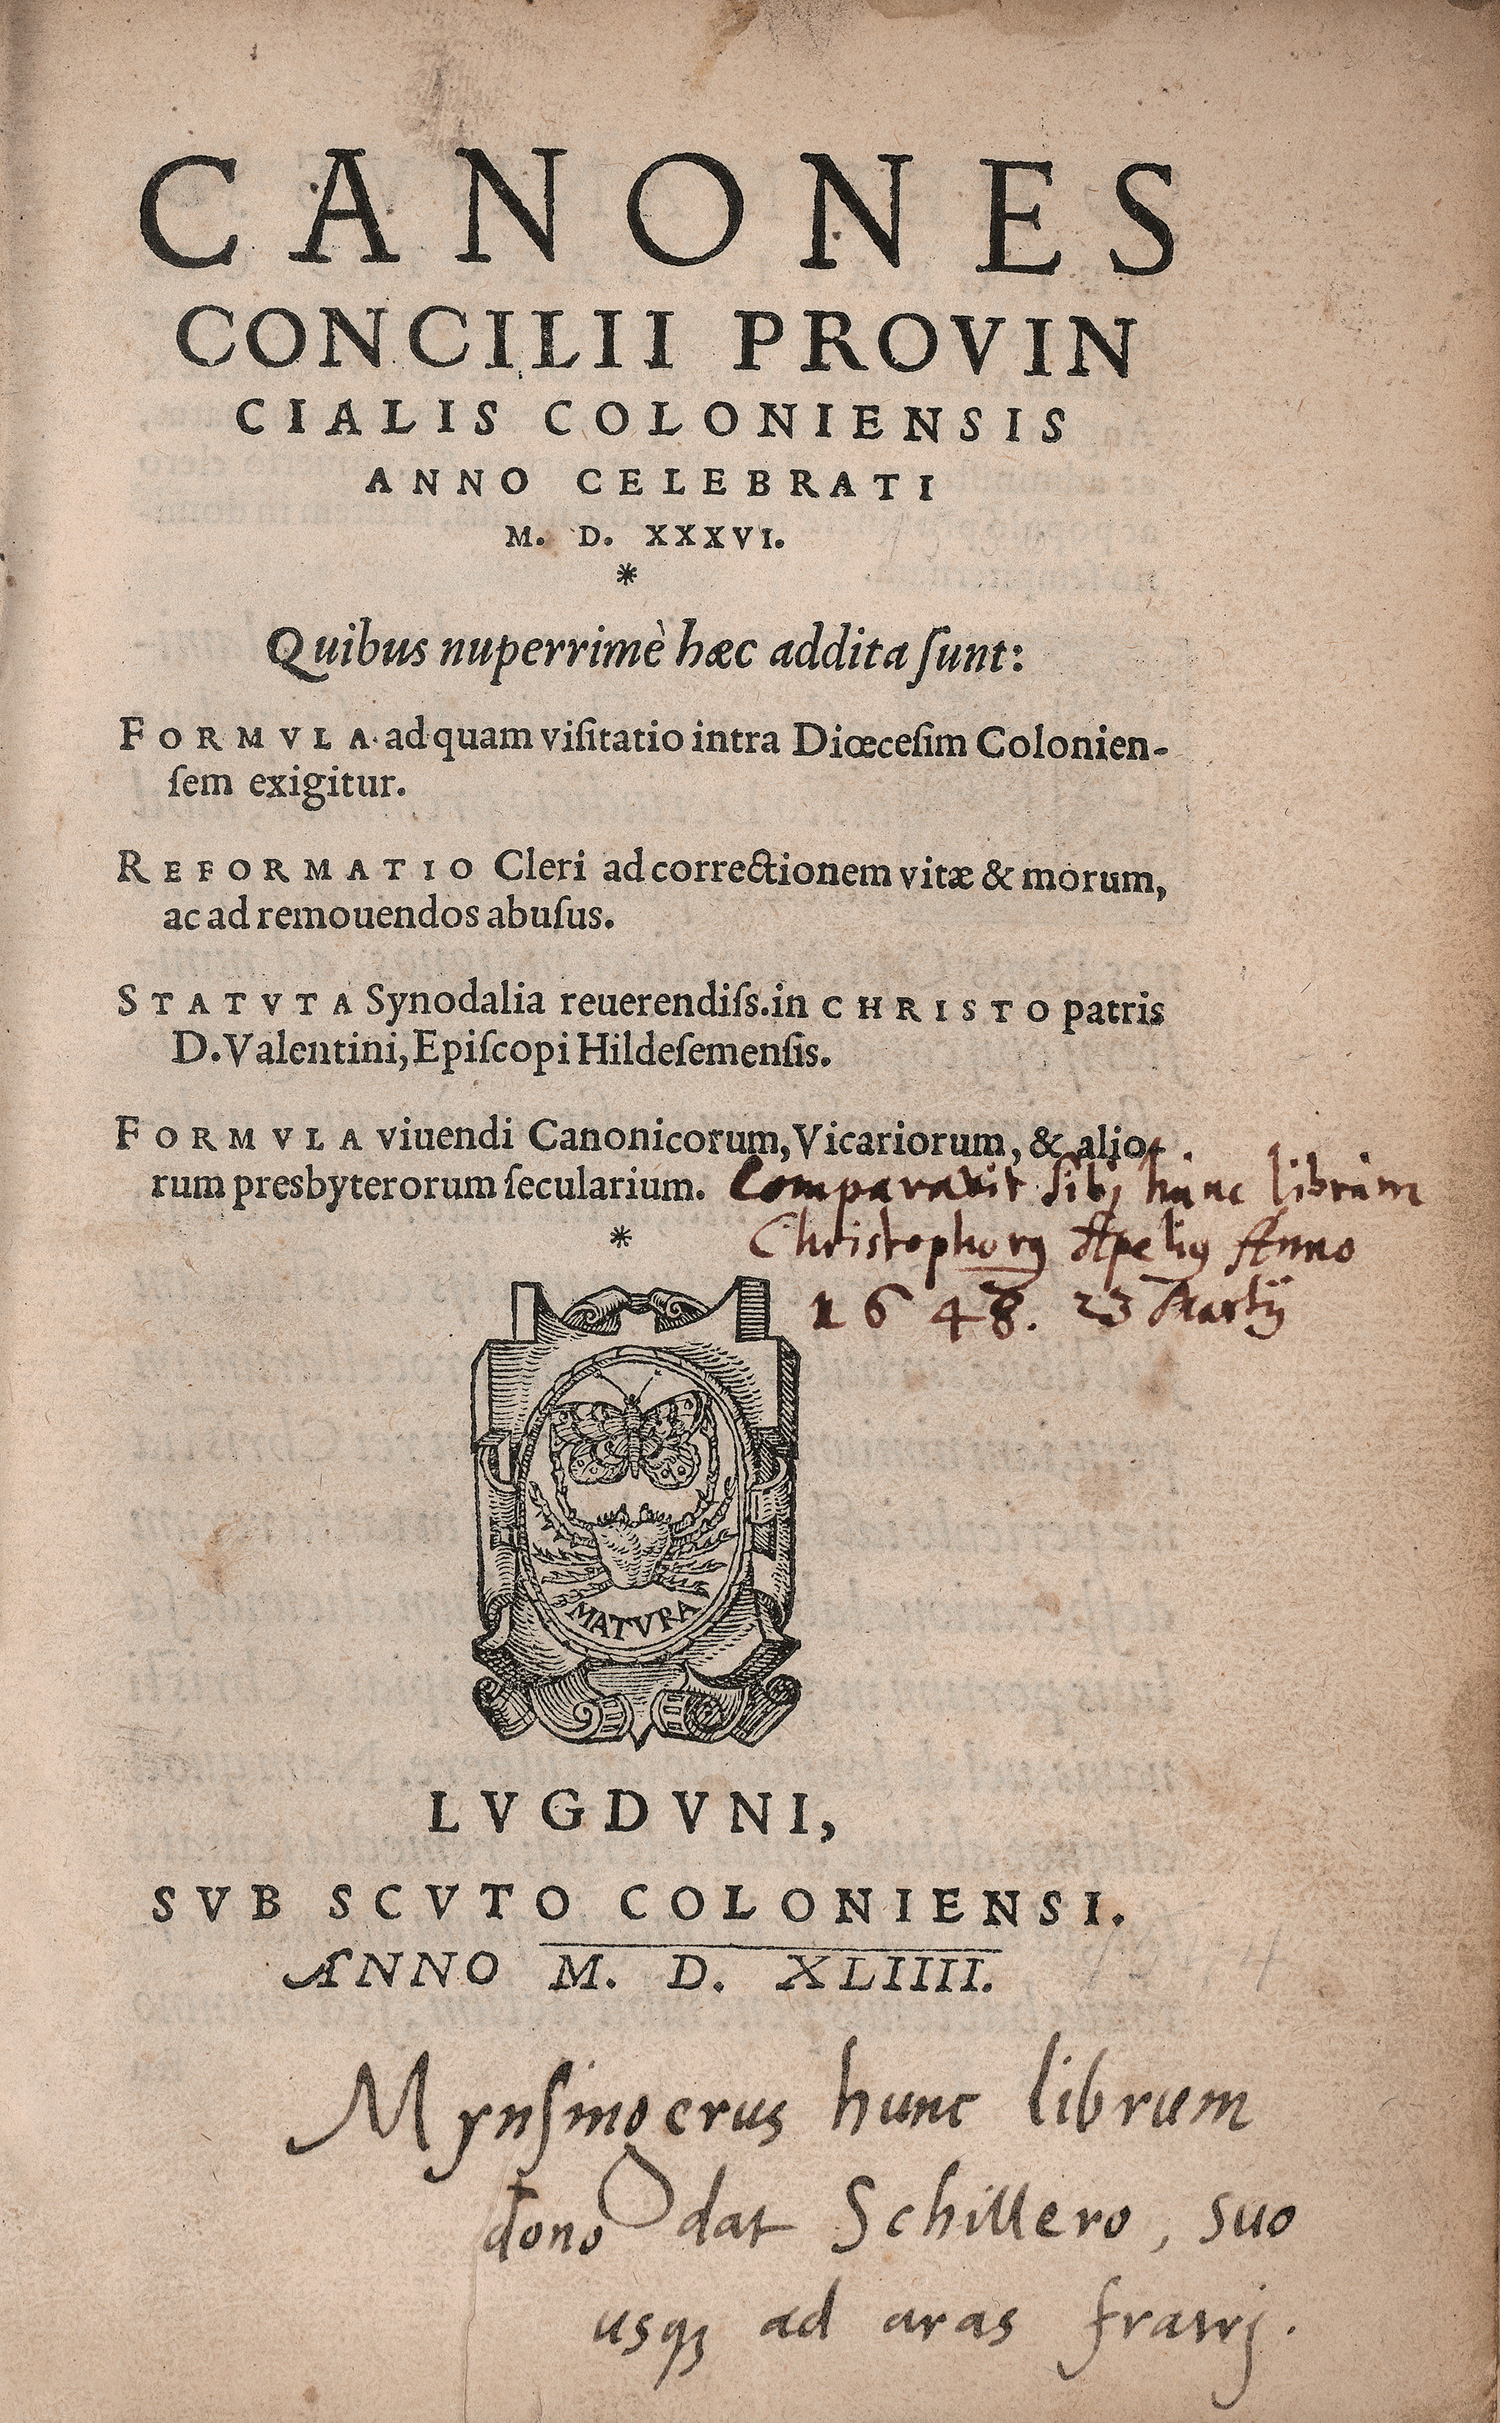 CANONES
CONCILII PROVIN
CIALIS COLONIENSIS
ANNO CELEBRATI
M. D. XXXVI.
*
Quibus nuperrimè hæc addita ſunt:
FORMVLA ad quam viſitatio intra Diœceſim Colonien-
ſem exigitur.
REFORMATIO Cleri ad correctionem vitæ & morum,
ac ad remouendos abuſus.
STATVTA Synodalia reuerendiſs. in CHRISTO patris
D. Valentini, Epiſcopi Hildeſemenſis.
FORMVLA viuendi Canonicorum, Vicariorum, & alio-
rum presbyterorum ſecularium.
Comparavit sibj hunc librum
Christophorꝰ Apeliꝰ Anno
1648. 23 Martij
*
MATVRA
LVGDVNI,
SVB SCVTO COLONIENSI.
ANNO M. D. XLIIII.
Mynſingerus hunc librum
dono dat Schillero, suo
usqꝫ ad aras fratrj.